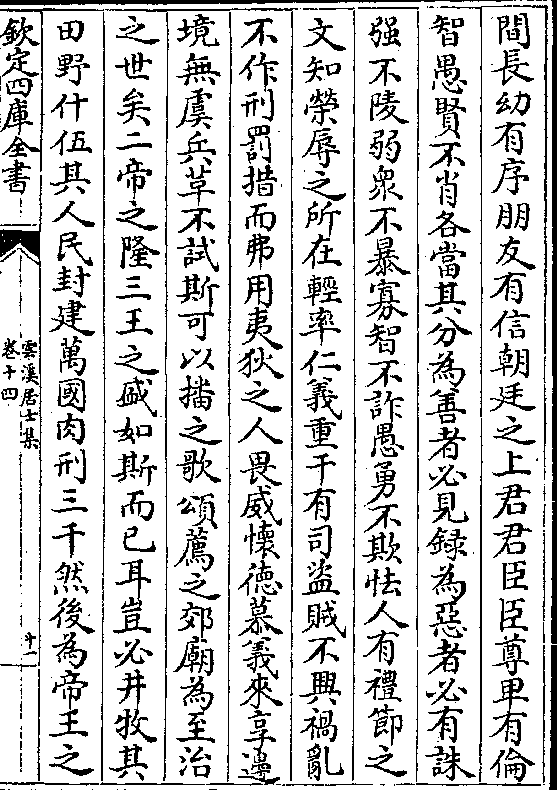 間長幼有序朋友有信朝廷之上君君臣臣尊卑有倫
智愚賢不肖各當其分為善者必見録為惡者必有誅
强不陵弱衆不暴寡智不詐愚勇不欺怯人有禮節之
文知榮辱之所在輕率仁義重干有司盜賊不興禍亂
不作刑罰措而弗用夷狄之人畏威懷德慕義來享邊
境無虞兵革不試斯可以播之歌頌薦之郊廟為至治
之世矣二帝之隆三王之盛如斯而已耳豈必井牧其
田野什伍其人民封建萬國肉刑三千然後為帝王之
欽定四庫全書
雲溪居士集
卷十四
十二